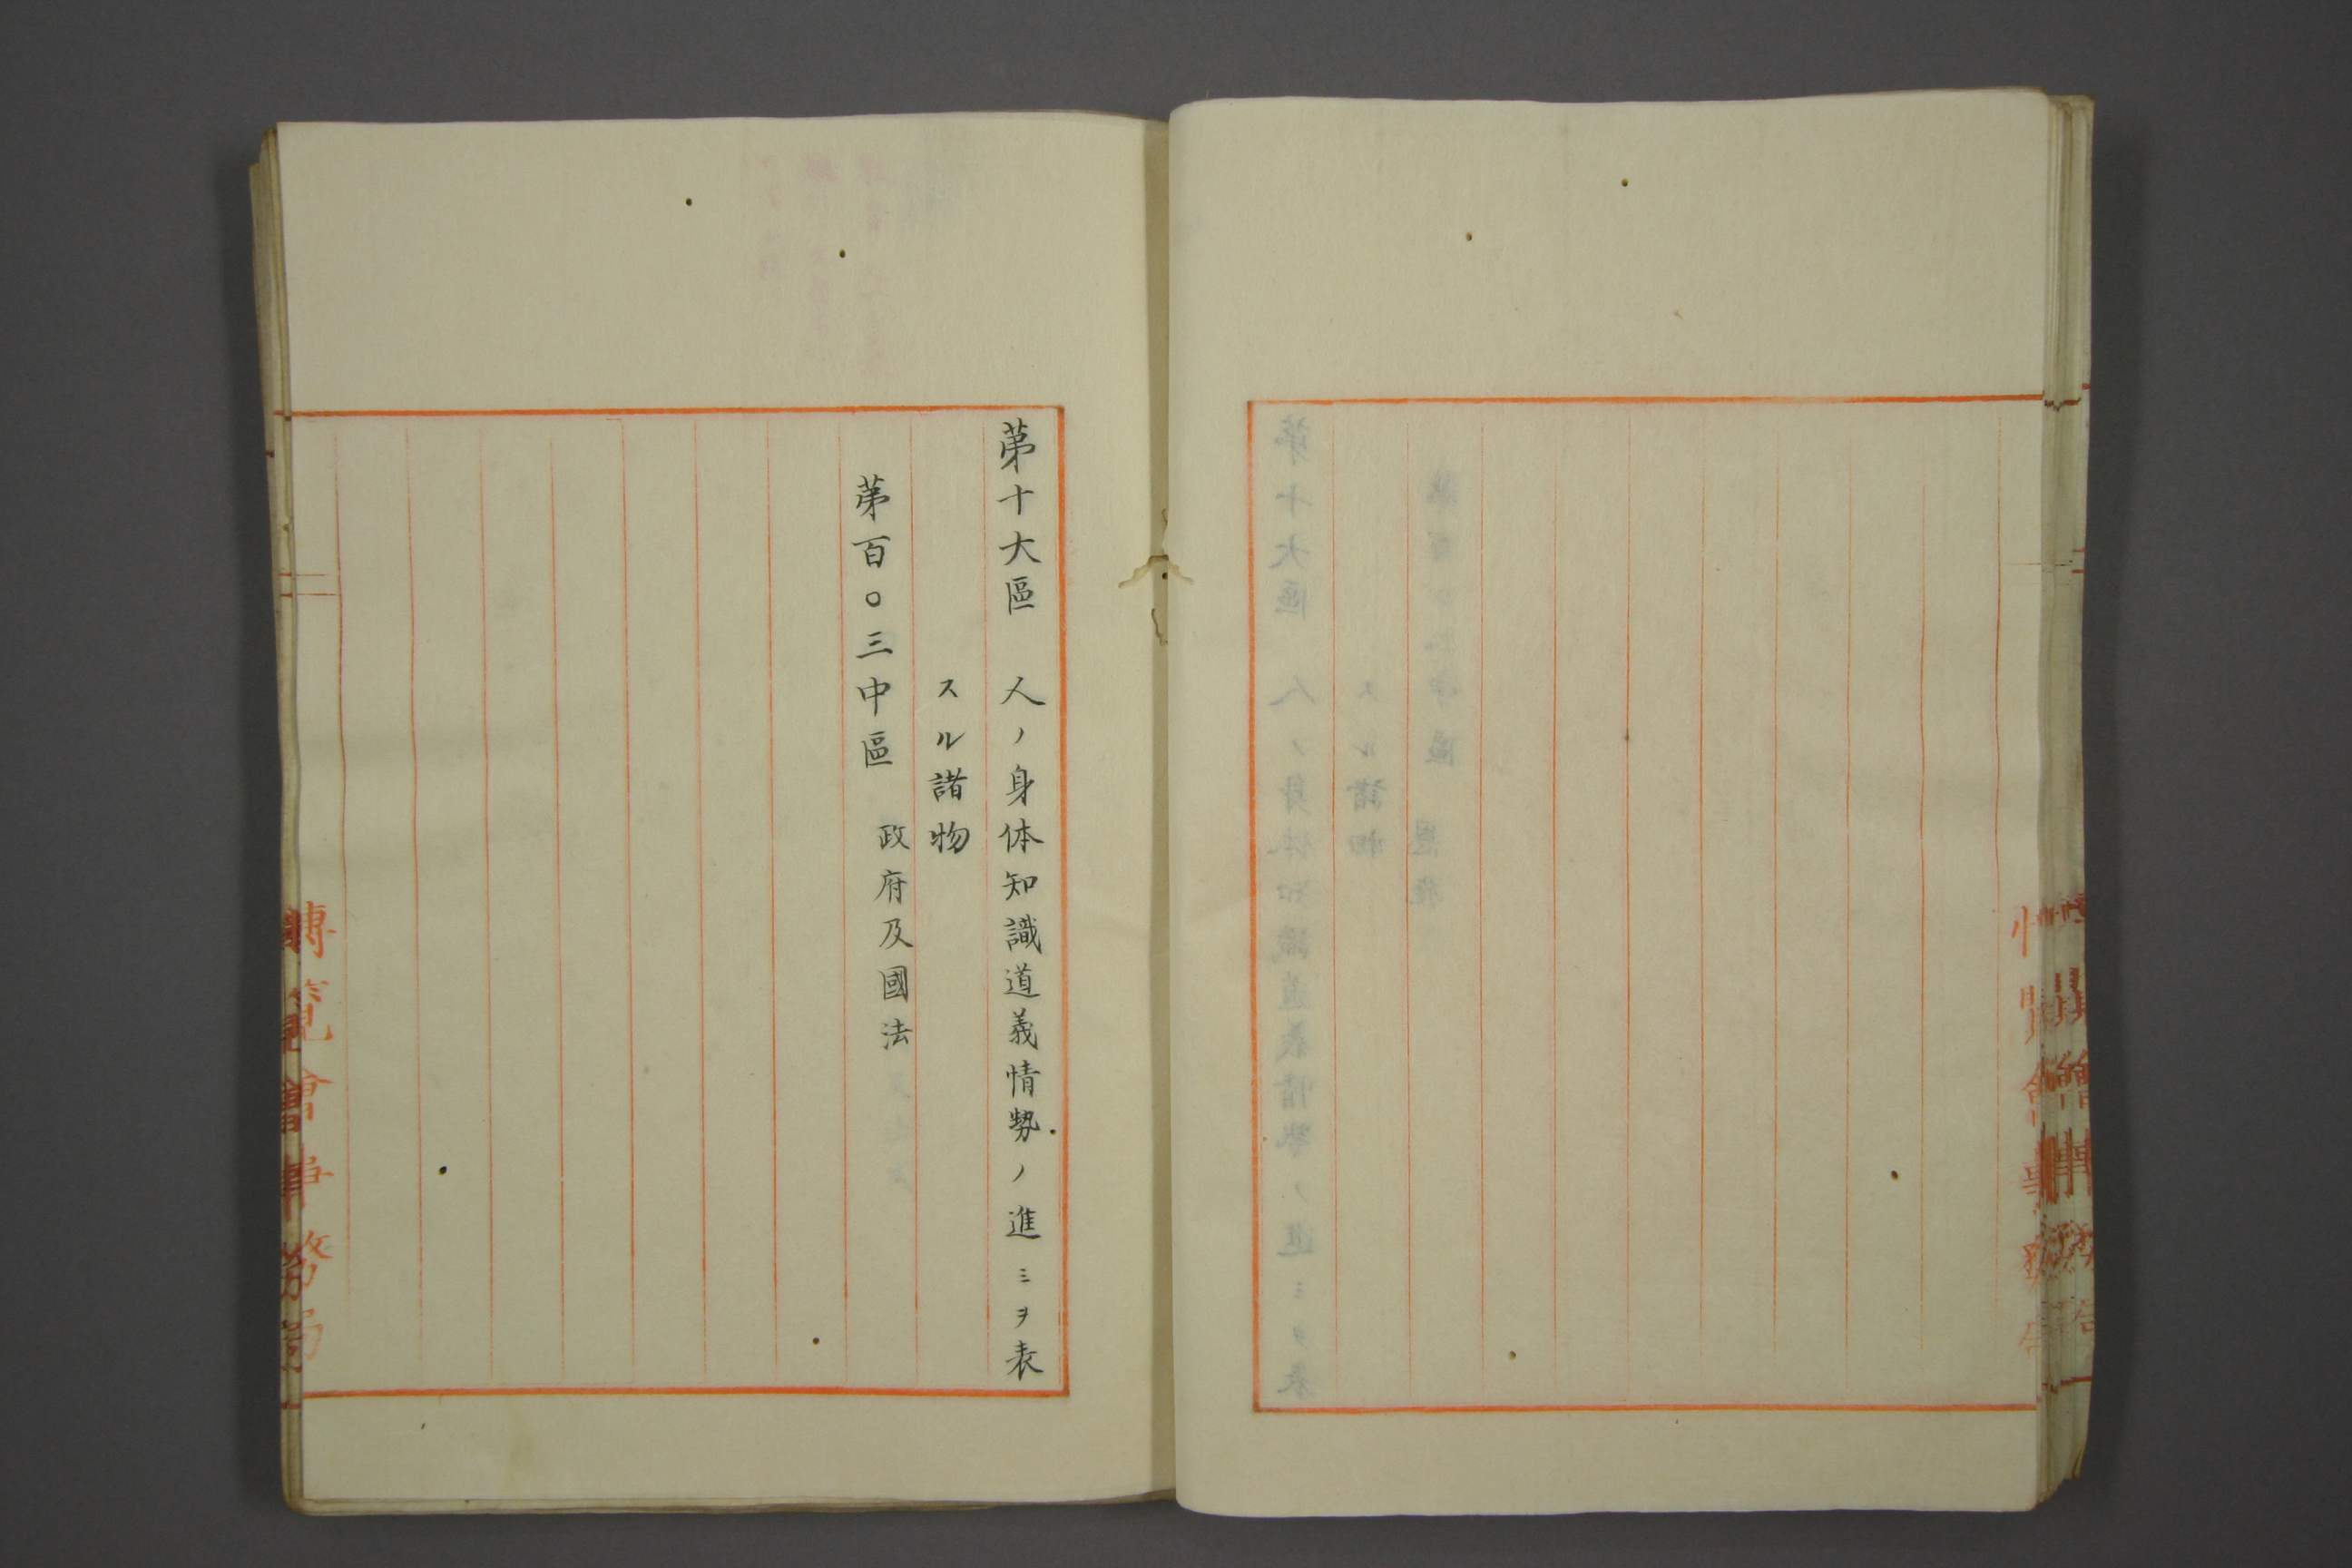 第十大區　人ノ身体知識道義情勢ノ進ミヲ表
スル諸物
第百〇三中區　政府及國法
博覧會事務局